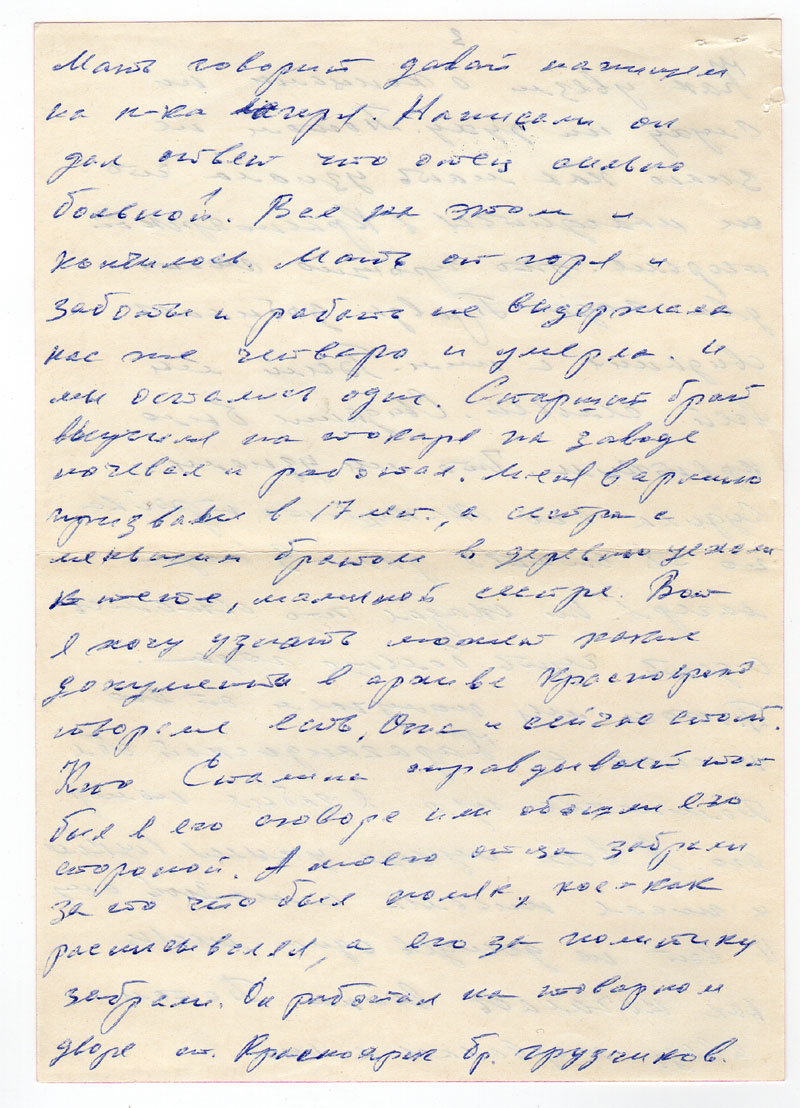 Мать говорит давай напишем
на н-ка лагеря. Написали он
дал ответ что отец сильно
больной. Все на этом и
кончилось. Мать от горя и
заботы и работы не выдержала
нас же четверо и умерла. и
мы остались одни. Старший брат
выучился на токаря на заводе
ночевал и работал. Меня в армию
призвали в 17 лет., а сестра с
братом в деревню уехали
к тете, маминой сестре. Вот
я хочу узнать может какие
документы в архиве Красноярской
тюрьме есть. Она и сейчас стоит.
Кто Сталина оправдывает тот
был в его сговоре или обошли его
стороной. А моего отца забрали
за то что был поляк, кое-как
расписывался, а его за политику
забрали. Он работал на товарном
дворе ст. Красноярск бр. грузчиков.